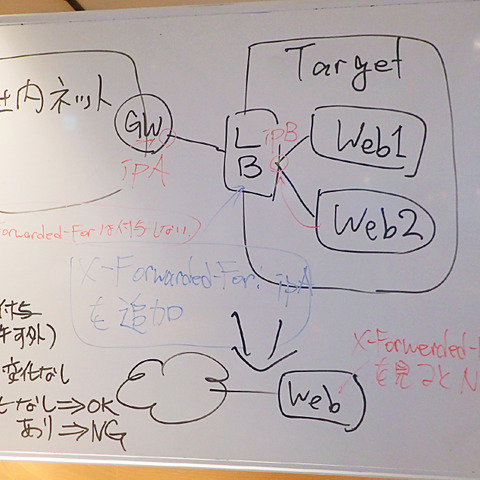 社内ネット
GW
ipA
Target
LB
ipB
Web1
Web2
orwarded-Forは付与しない)
X-Forwarded-For: ipA
を追加
付与
外)
変化なし
なし⇒OK
あり⇒NG
Web
X-Forwarded-
を見ると N